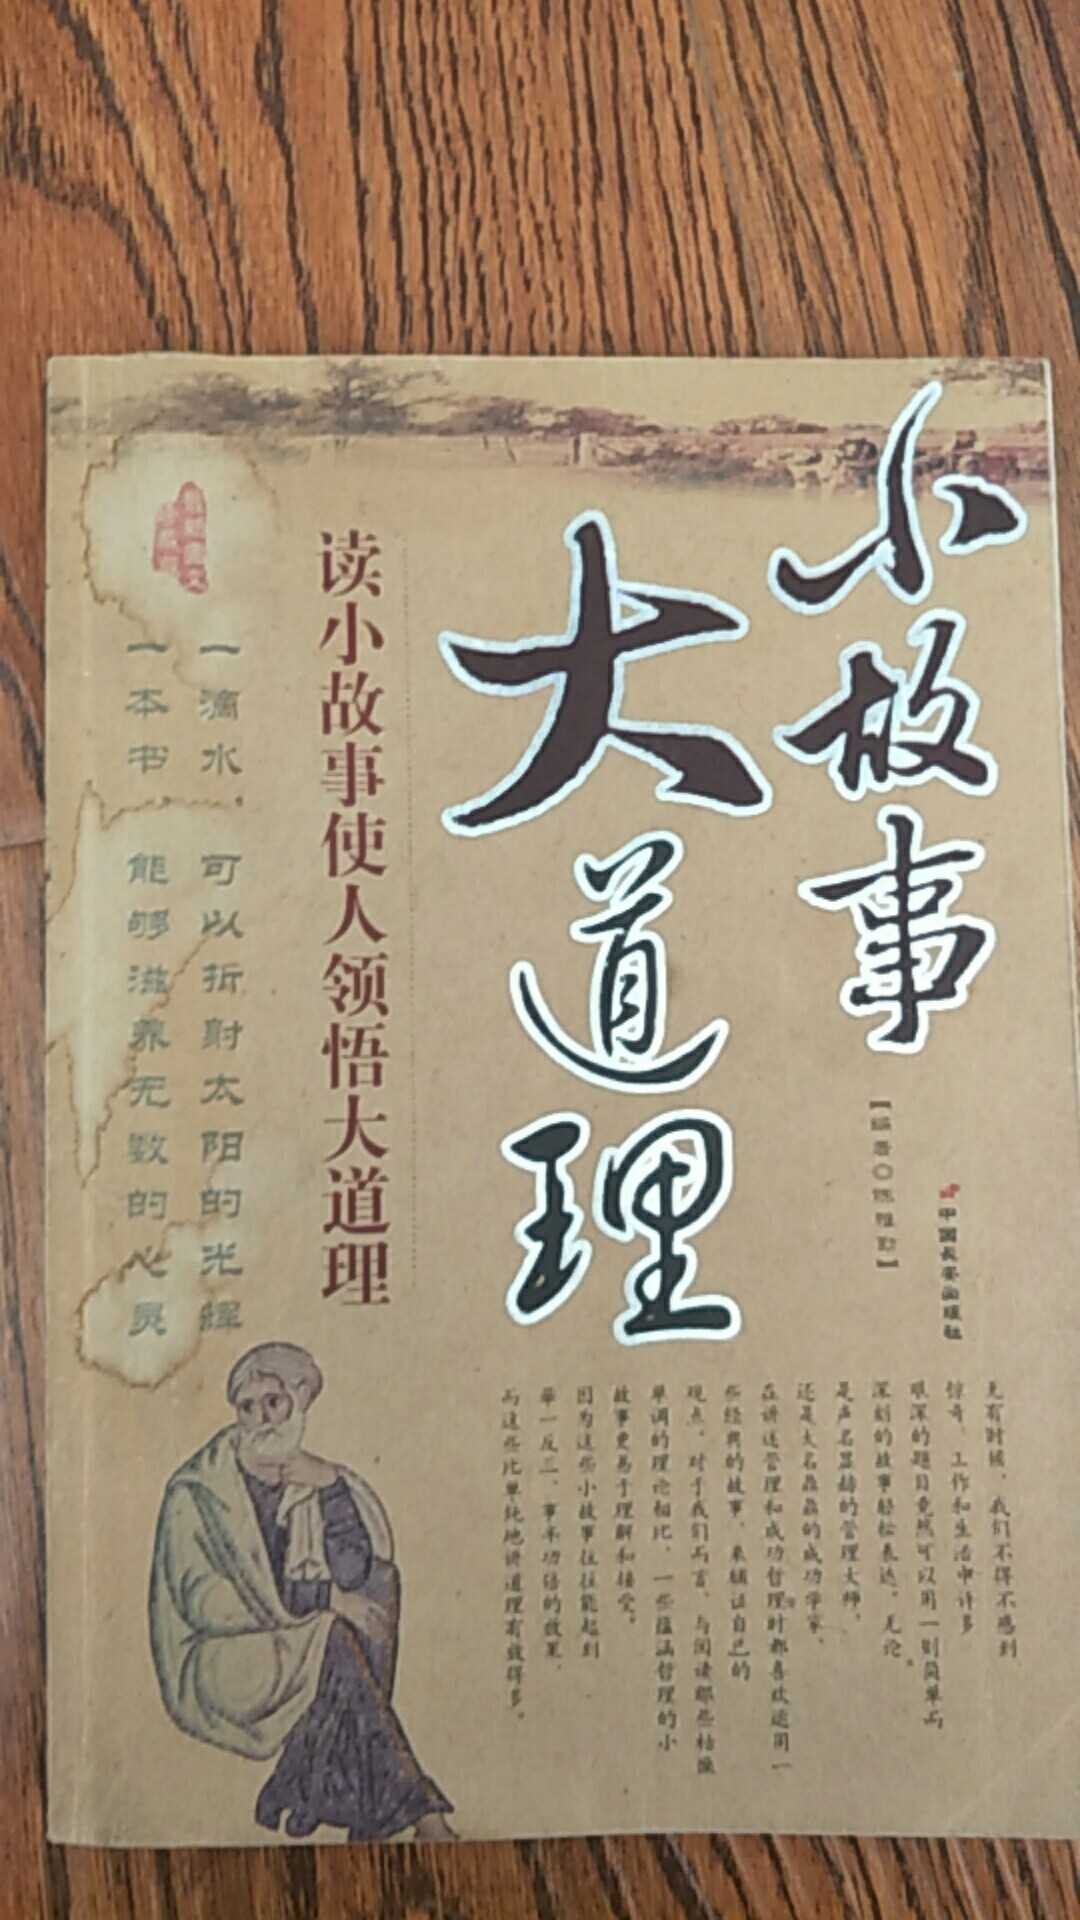 小故事
大道理
【编著◎陈雅勤】
中国长安出版社
读小故事使人领悟大道理
一滴水，可以折射太阳的光辉
一本书，能够滋养无数的心灵
我们不得不感到
惊奇，工作和生活中许多
艰深的题目竟然可以用一则简单而
深刻的故事轻松表达。无论
是声名显赫的管理大师，
还是大名鼎鼎的成功学家，
在讲述管理和成功哲理时都喜欢运用一
些经典的故事，来辅证自己的
观点。对于我们而言，与阅读那些枯燥
单调的理论相比，一些蕴涵哲理的小
故事更易于理解和接受。
因为这些小故事往往能起到
举一反三、事半功倍的效果，
而这些比单纯地讲道理有效得多。